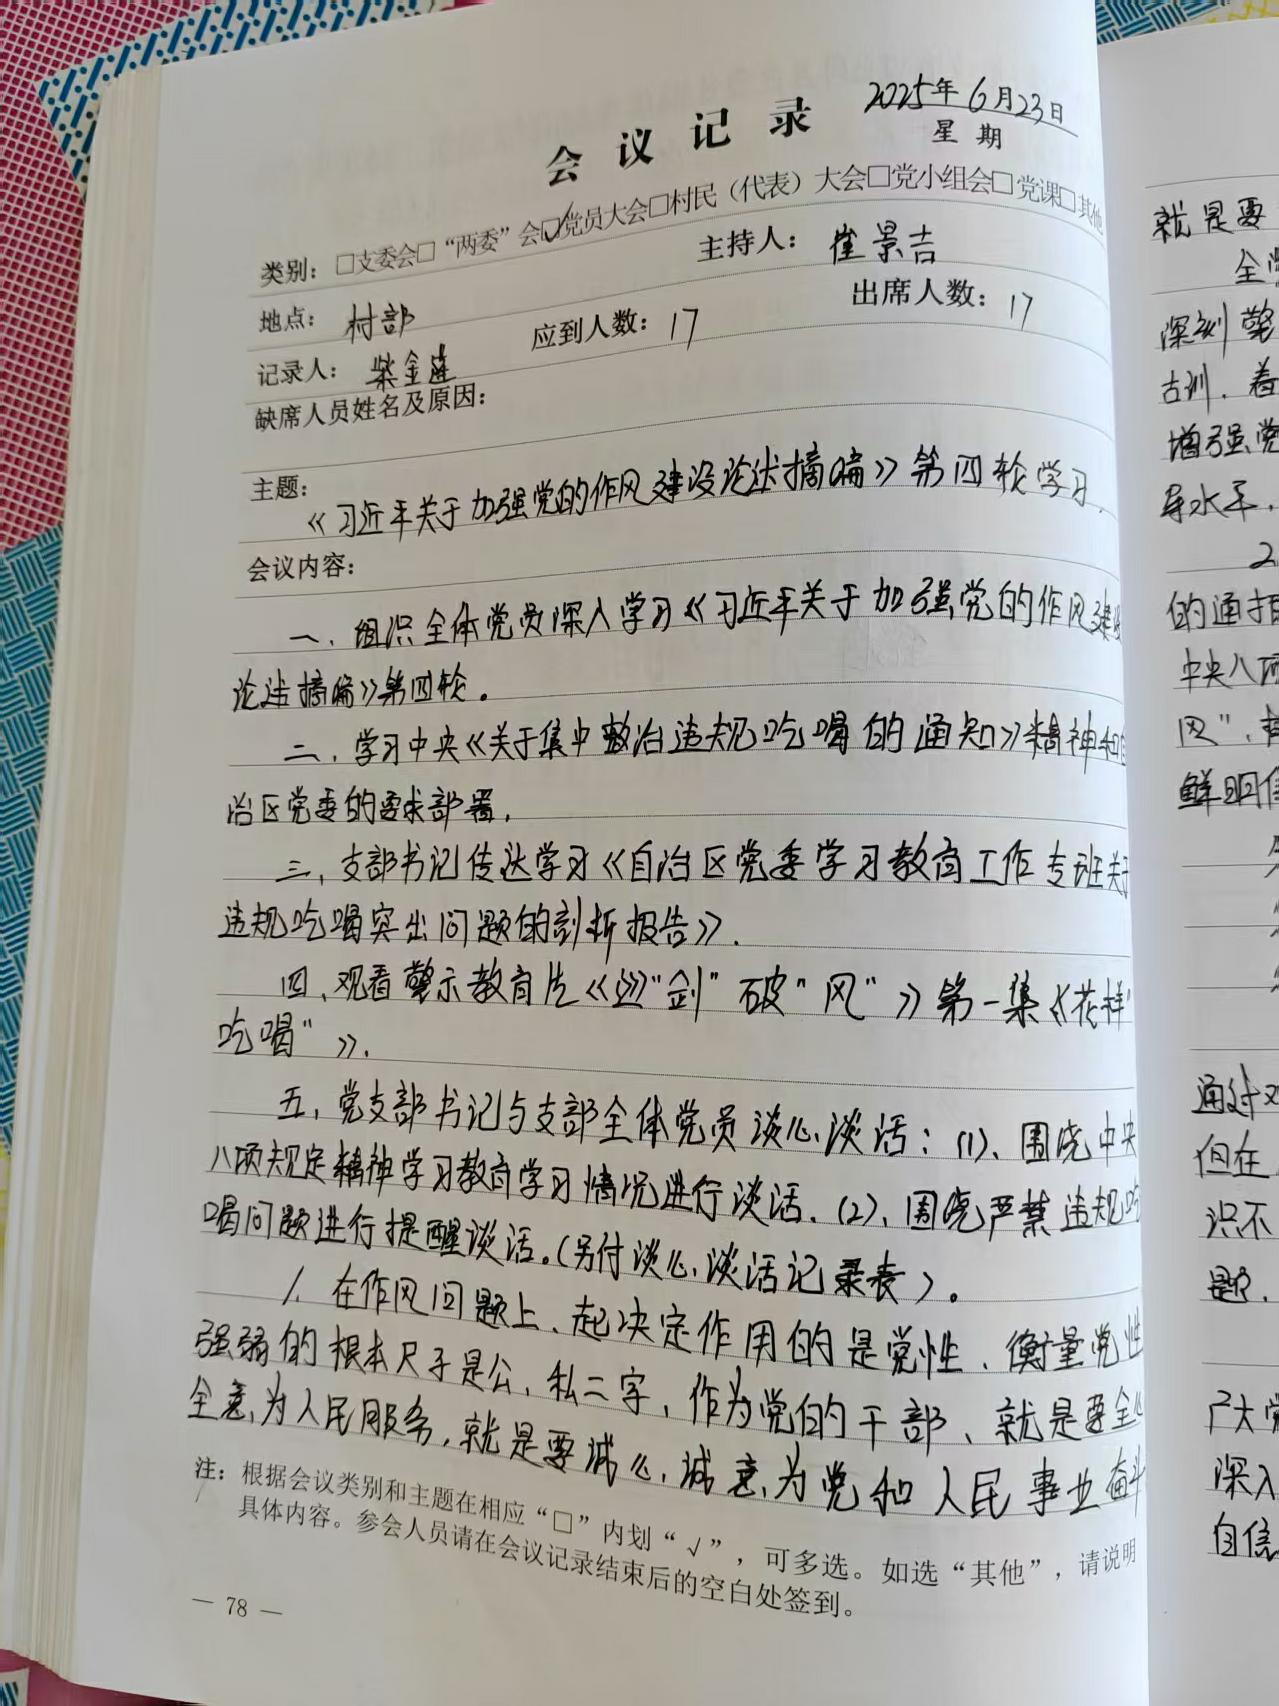 2025年6月23日
会议记录
星期
类别：□支委会□“两委”会☑党员大会□村民（代表）大会□党小组会□党课□其他
地点：村部
主持人：崔景吉
记录人：柴金莲
应到人数：17
出席人数：17
缺席人员姓名及原因：
主题：
《习近平关于加强党的作风建设论述摘编》第四轮学习.
会议内容：
一、组织全体党员深入学习《习近平关于加强党的作风建设
论述摘编》第四轮。
二、学习中央《关于集中整治违规吃喝的通知》精神和自
治区党委的要求部署，
三、支部书记传达学习《自治区党委学习教育工作专班关于
违规吃喝突出问题的剖析报告》.
四、观看警示教育片《巡“剑”破“风”》第一集《花样“
吃喝”》.
五、党支部书记与支部全体党员谈心谈话：(1)、围绕中央
八项规定精神学习教育学习情况进行谈话、(2)、围绕严禁违规吃
喝问题进行提醒谈话。(另付谈心谈话记录表)。
1、在作风问题上、起决定作用的是党性、衡量党性
强弱的根本尺子是公、私二字，作为党的干部、就是要全心
全意为人民服务，就是要诚心诚意为党和人民事业奋斗
注：根据会议类别和主题在相应“□”内划“√”，可多选。如选“其他”，请说明
具体内容。参会人员请在会议记录结束后的空白处签到。
— 78 —
就是要
深刻警
古训、着
增强党
导水平，
2
的通报
中央八项
风”，
鲜明
通过观
但在
识不
题，
广大党
深入
自信